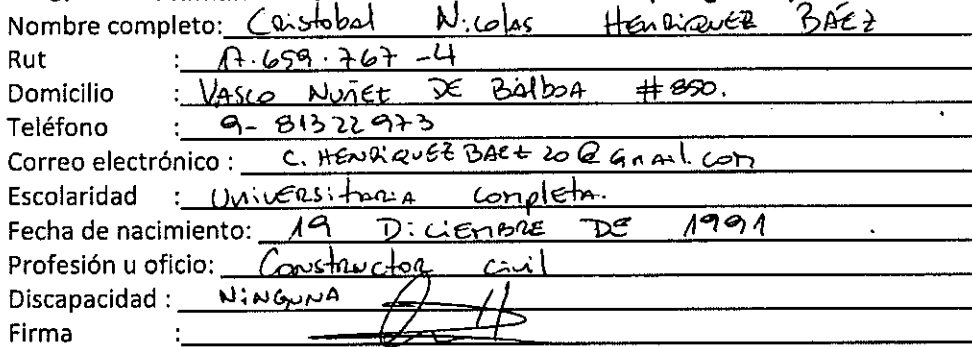 Nombre completo: Cristobal Nicolas HENRIQUEZ BAEZ
Rut : 17.659.767-4
Domicilio : VASCO NUÑEZ DE BALBOA #850.
Teléfono : 9-81322973
Correo electrónico : C.HENRIQUEZBAEZ20@GMAIL.COM
Escolaridad : UNIVERSITARIA COMPLETA.
Fecha de nacimiento: 19 DICIEMBRE DE 1991
Profesión u oficio: Constructor civil
Discapacidad : NINGUNA
Firma :